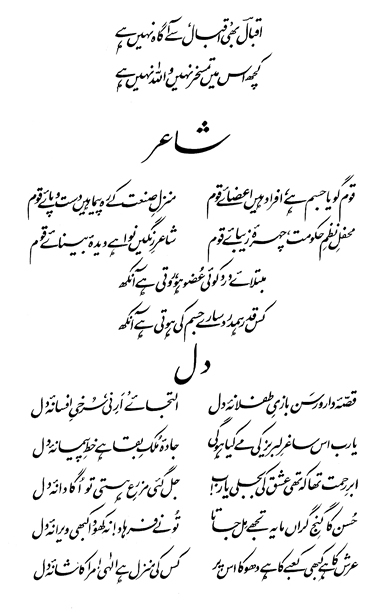 اقبالؔ بھی اقبالؔ سے آگاہ نہیں ہے
کچھ اس میں تمسخر نہیں واللہ نہیں ہے
شاعر
قوم گویا جسم ہے، افراد ہیں اعضائے قوم منزلِ صنعت کے رہ پیما ہیں دست و پائے قوم
محفلِ نظمِ حکومت، چہرۂ زیبائے قوم شاعرِ رنگیں نوا ہے دیدۂ بینائے قوم
مبتلائے درد کوئی عضو ہو روتی ہے آنکھ
کس قدر ہمدرد سارے جسم کی ہوتی ہے آنکھ
دل
قصّۂ دار و رسن بازیِ طفلانۂ دل التجائے اَرِنی سُرخیِ افسانۂ دل
یا رب اس ساغرِ لبریز کی مے کیا ہوگی جادۂ ملکِ بقا ہے خطِ پیمانۂ دل
ابرِ رحمت تھا کہ تھی عشق کی بجلی یا رب! جل گئی مزرعِ ہستی تو اُگا دانۂ دل
حُسن کا گنجِ گراں مایہ تجھے مل جاتا تو نے فرہاد! نہ کھودا کبھی ویرانۂ دل
عرش کا ہے کبھی کعبے کا ہے دھوکا اس پر کس کی منزل ہے الٰہی! مرا کاشانۂ دل